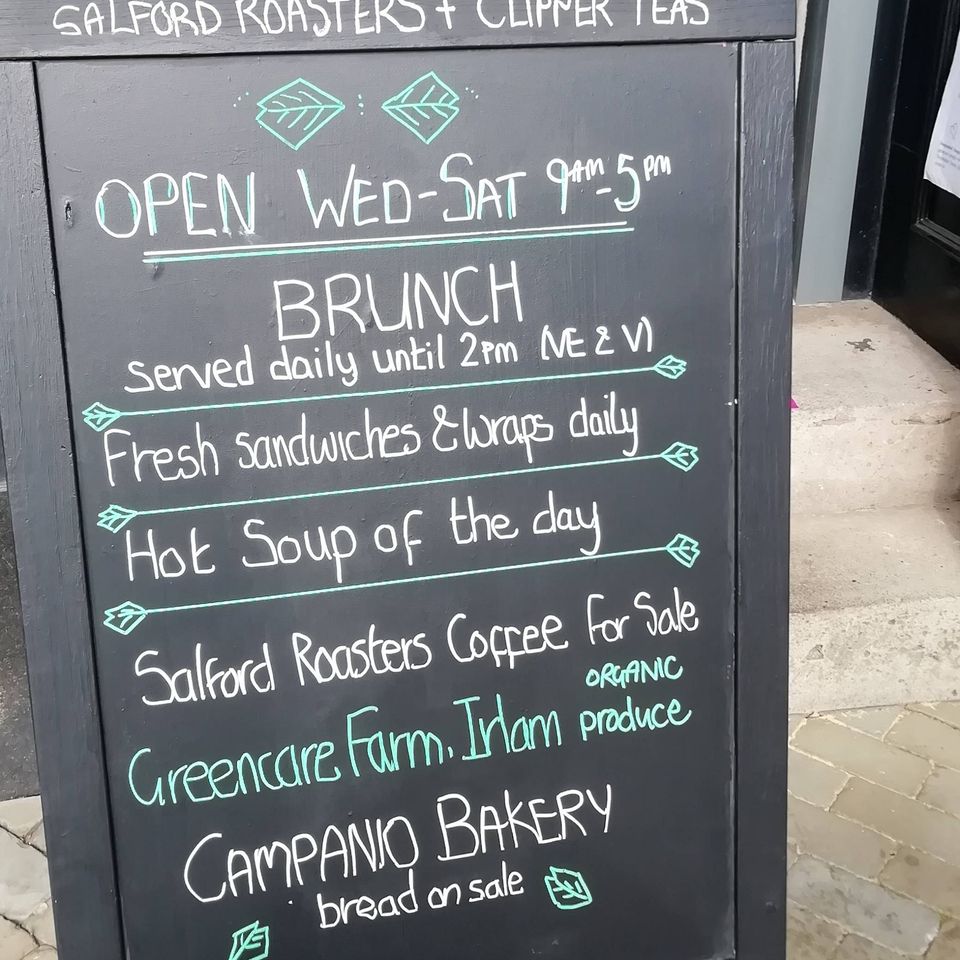 SALFORD ROASTERS + CLIPPER TEAS
OPEN WED-SAT 9AM-5PM
BRUNCH
Served daily until 2pm (VE & V)
Fresh sandwiches & Wraps daily
Hot Soup of the day
Salford Roasters Coffee For Sale
ORGANIC
Greencare Farm. Irlam produce
CAMPANIO BAKERY
bread on sale